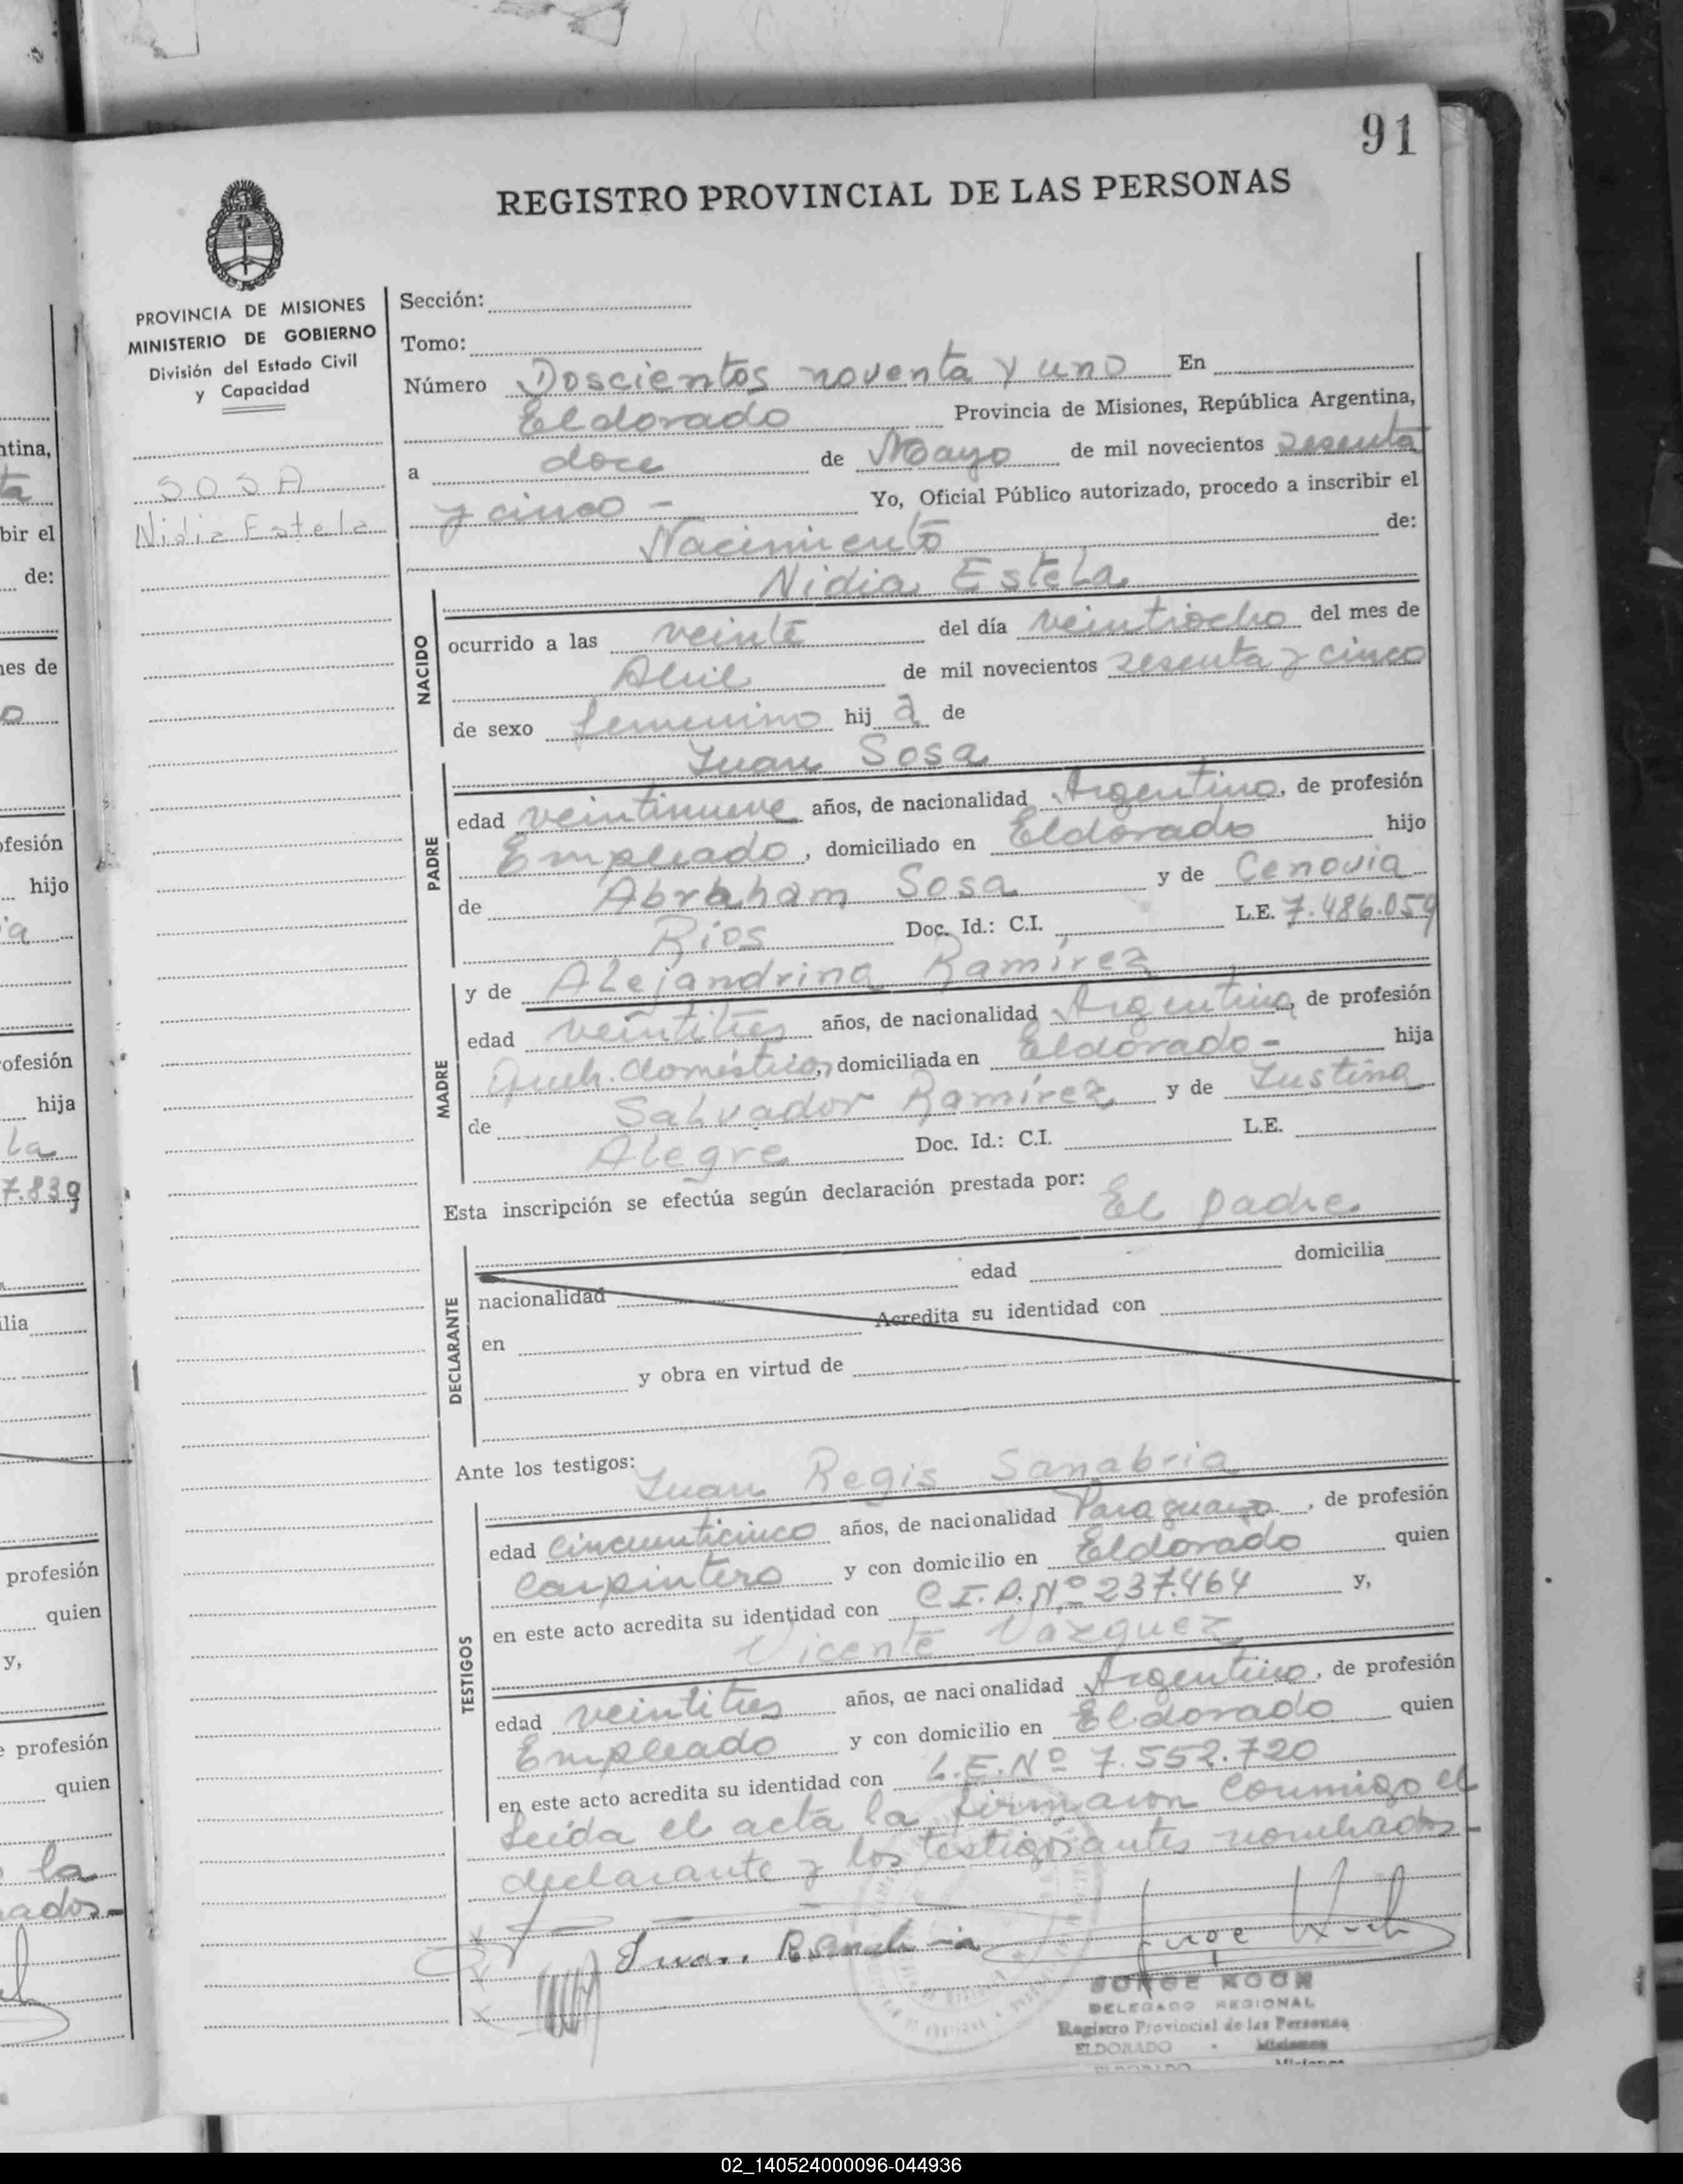 91
REGISTRO PROVINCIAL DE LAS PERSONAS
PROVINCIA DE MISIONES
MINISTERIO DE GOBIERNO
División del Estado Civil
y Capacidad
SOSA
Nidia Estela
Sección:
Tomo:
Número Doscientos noventa y uno En
Eldorado Provincia de Misiones, República Argentina,
a doce de Mayo de mil novecientos sesenta
y cinco - Yo, Oficial Público autorizado, procedo a inscribir el
Nacimiento de:
Nidia Estela
NACIDO
ocurrido a las veinte del día veintiocho del mes de
Abril de mil novecientos sesenta y cinco
de sexo femenino hij a de
Juan Sosa
PADRE
edad veintinueve años, de nacionalidad Argentino, de profesión
Empleado, domiciliado en Eldorado hijo
de Abraham Sosa y de Cenovia
Rios Doc. Id.: C.I. L.E. 7.486.059
y de Alejandrina Ramírez
MADRE
edad veintitres años, de nacionalidad Argentina, de profesión
Queh. domésticos, domiciliada en Eldorado - hija
de Salvador Ramírez y de Justina
Alegre Doc. Id.: C.I. L.E.
Esta inscripción se efectúa según declaración prestada por: El padre
DECLARANTE
edad domicilia
nacionalidad
en Acredita su identidad con
y obra en virtud de
Ante los testigos: Juan Regis Sanabria
TESTIGOS
edad cincuenticinco años, de nacionalidad Paraguayo, de profesión
Carpintero y con domicilio en Eldorado quien
en este acto acredita su identidad con C.I.P.Nº 237.464 y,
Vicente Vázquez
edad veintitres años, de nacionalidad Argentino, de profesión
Empleado y con domicilio en Eldorado quien
en este acto acredita su identidad con L.E.Nº 7.552.720
Leída el acta la firmaron conmigo el
declarante y los testigos antes nombrados -
JORGE KOCH
DELEGADO REGIONAL
Registro Provincial de las Personas
ELDORADO - Misiones
ELDORADO Misiones
ntina,
ta
bir el
de:
nes de
o
ofesión
hijo
ia
ofesión
hija
la
7.839
ilia
profesión
quien
y,
e profesión
quien
la
ados -
02_140524000096-044936